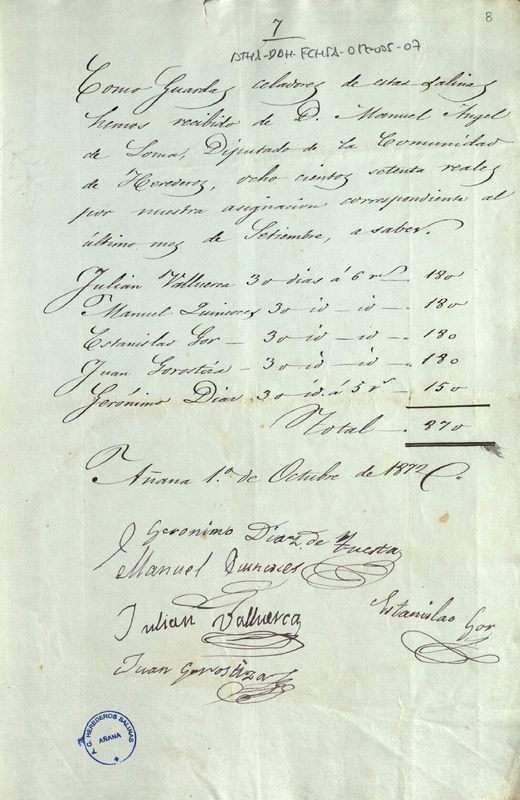 7
8
ATHA-DAH-FCHSA-017-005-07
Como Guardas celadores de estas Salinas
hemos recibido de D. Manuel Angel
de Loma, Diputado de la Comunidad
de Herederos, ocho cientos setenta reales
por nuestra asignacion correspondiente al
último mes de Setiembre, a saber.
Julian Valluerca 30 dias á 6 rs 180
Manuel Quincoces 30 id – id – 180
Estanislao Gor – 30 – id – id – 180
Juan Gorostiza – 30 – id – id – 180
Gerónimo Diaz 30 id. á 5 rs 150
Total – 870
Añana 1.º de Octubre de 1872
Geronimo Diaz de Tuesta
Manuel Quincoces
Julian Valluerca
Estanislao Gor
Juan Gorostiza
C. HEREDEROS SALINAS
AÑANA